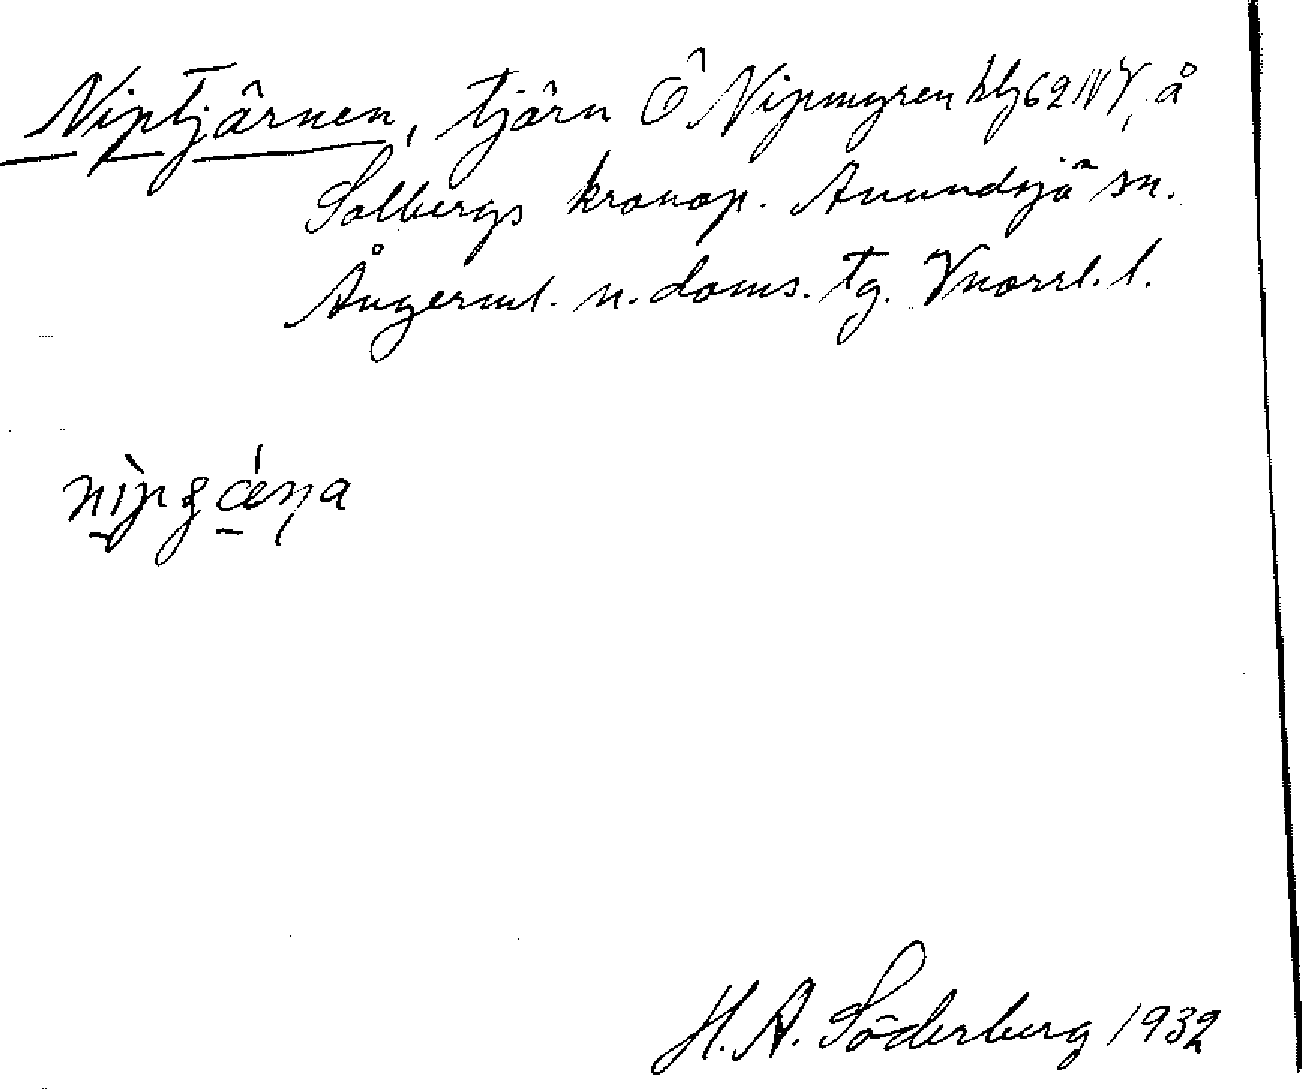 Niptjärnen, tjärn Ö Nipmyren blj 62 NV, å
Solbergs kronop. Anundsjö sn.
Ångerml. n. doms. tg. Vnorrl. l.
H. A. Söderberg 1932